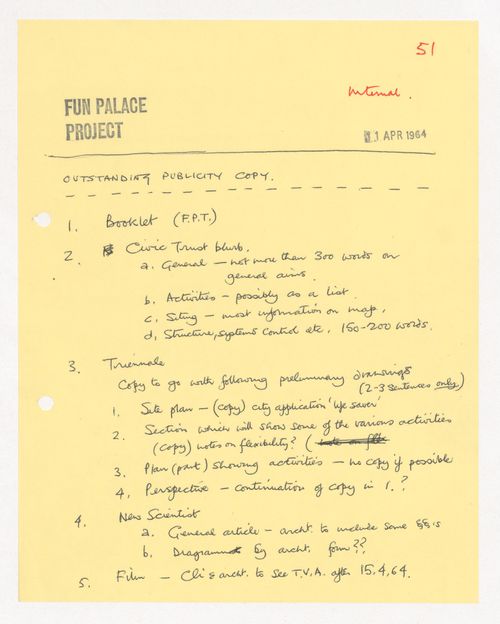 51
Internal.
FUN PALACE
PROJECT
1 APR 1964
OUTSTANDING PUBLICITY COPY.
1. Booklet (F.P.T.)
2. Civic Trust blurb.
a. General – not more than 300 words on
general aims.
b. Activities – possibly as a list.
c. Siting – most information on map.
d. Structure, systems control etc, 150-200 words.
3. Triennale
Copy to go with following preliminary drawings
(2-3 sentences only)
1. Site plan – (copy) city application 'life saver'
2. Section which will show some of the various activities
(copy) notes on flexibility? (
3. Plan (part) showing activities – no copy if possible
4. Perspective – continuation of copy in 1.?
4. New Scientist
a. General article – archt. to include some
b. by archt. form??
5. Film – archt. to see T.V.A. after 15.4.64.